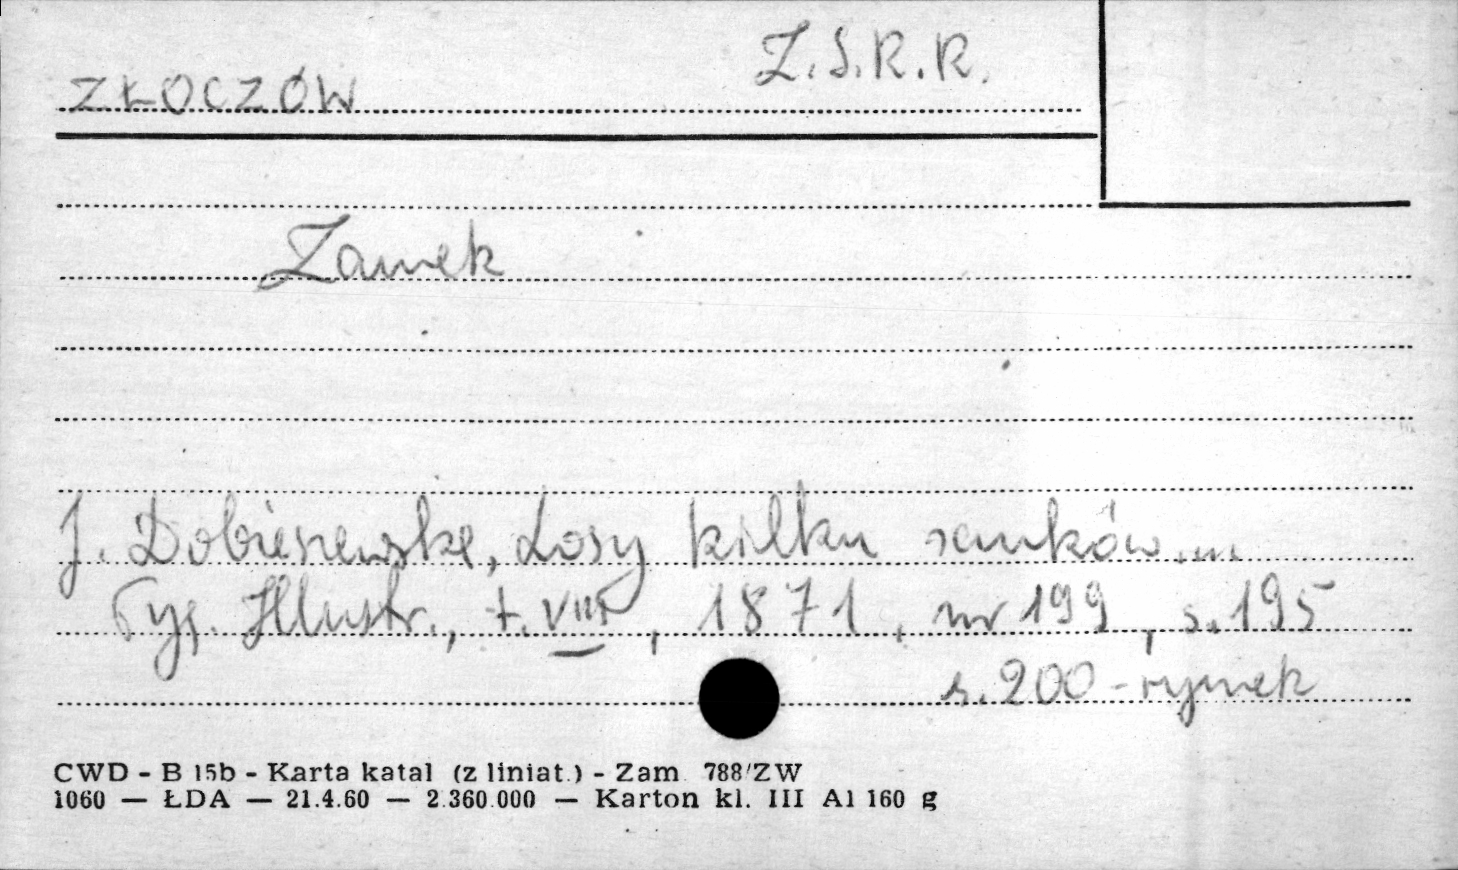 Z.S.R.R.
ZŁOCZÓW
Zamek
J. Dobieszewski, Losy kilku zamków....
Tyg. Illustr., t. VIII, 1871, nr 199, s. 195
s. 200 - rysunek
CWD - B 15b - Karta katal (z liniat.) - Zam 788/ZW
1060 — ŁDA — 21.4.60 — 2.360.000 — Karton kl. III A1 160 g